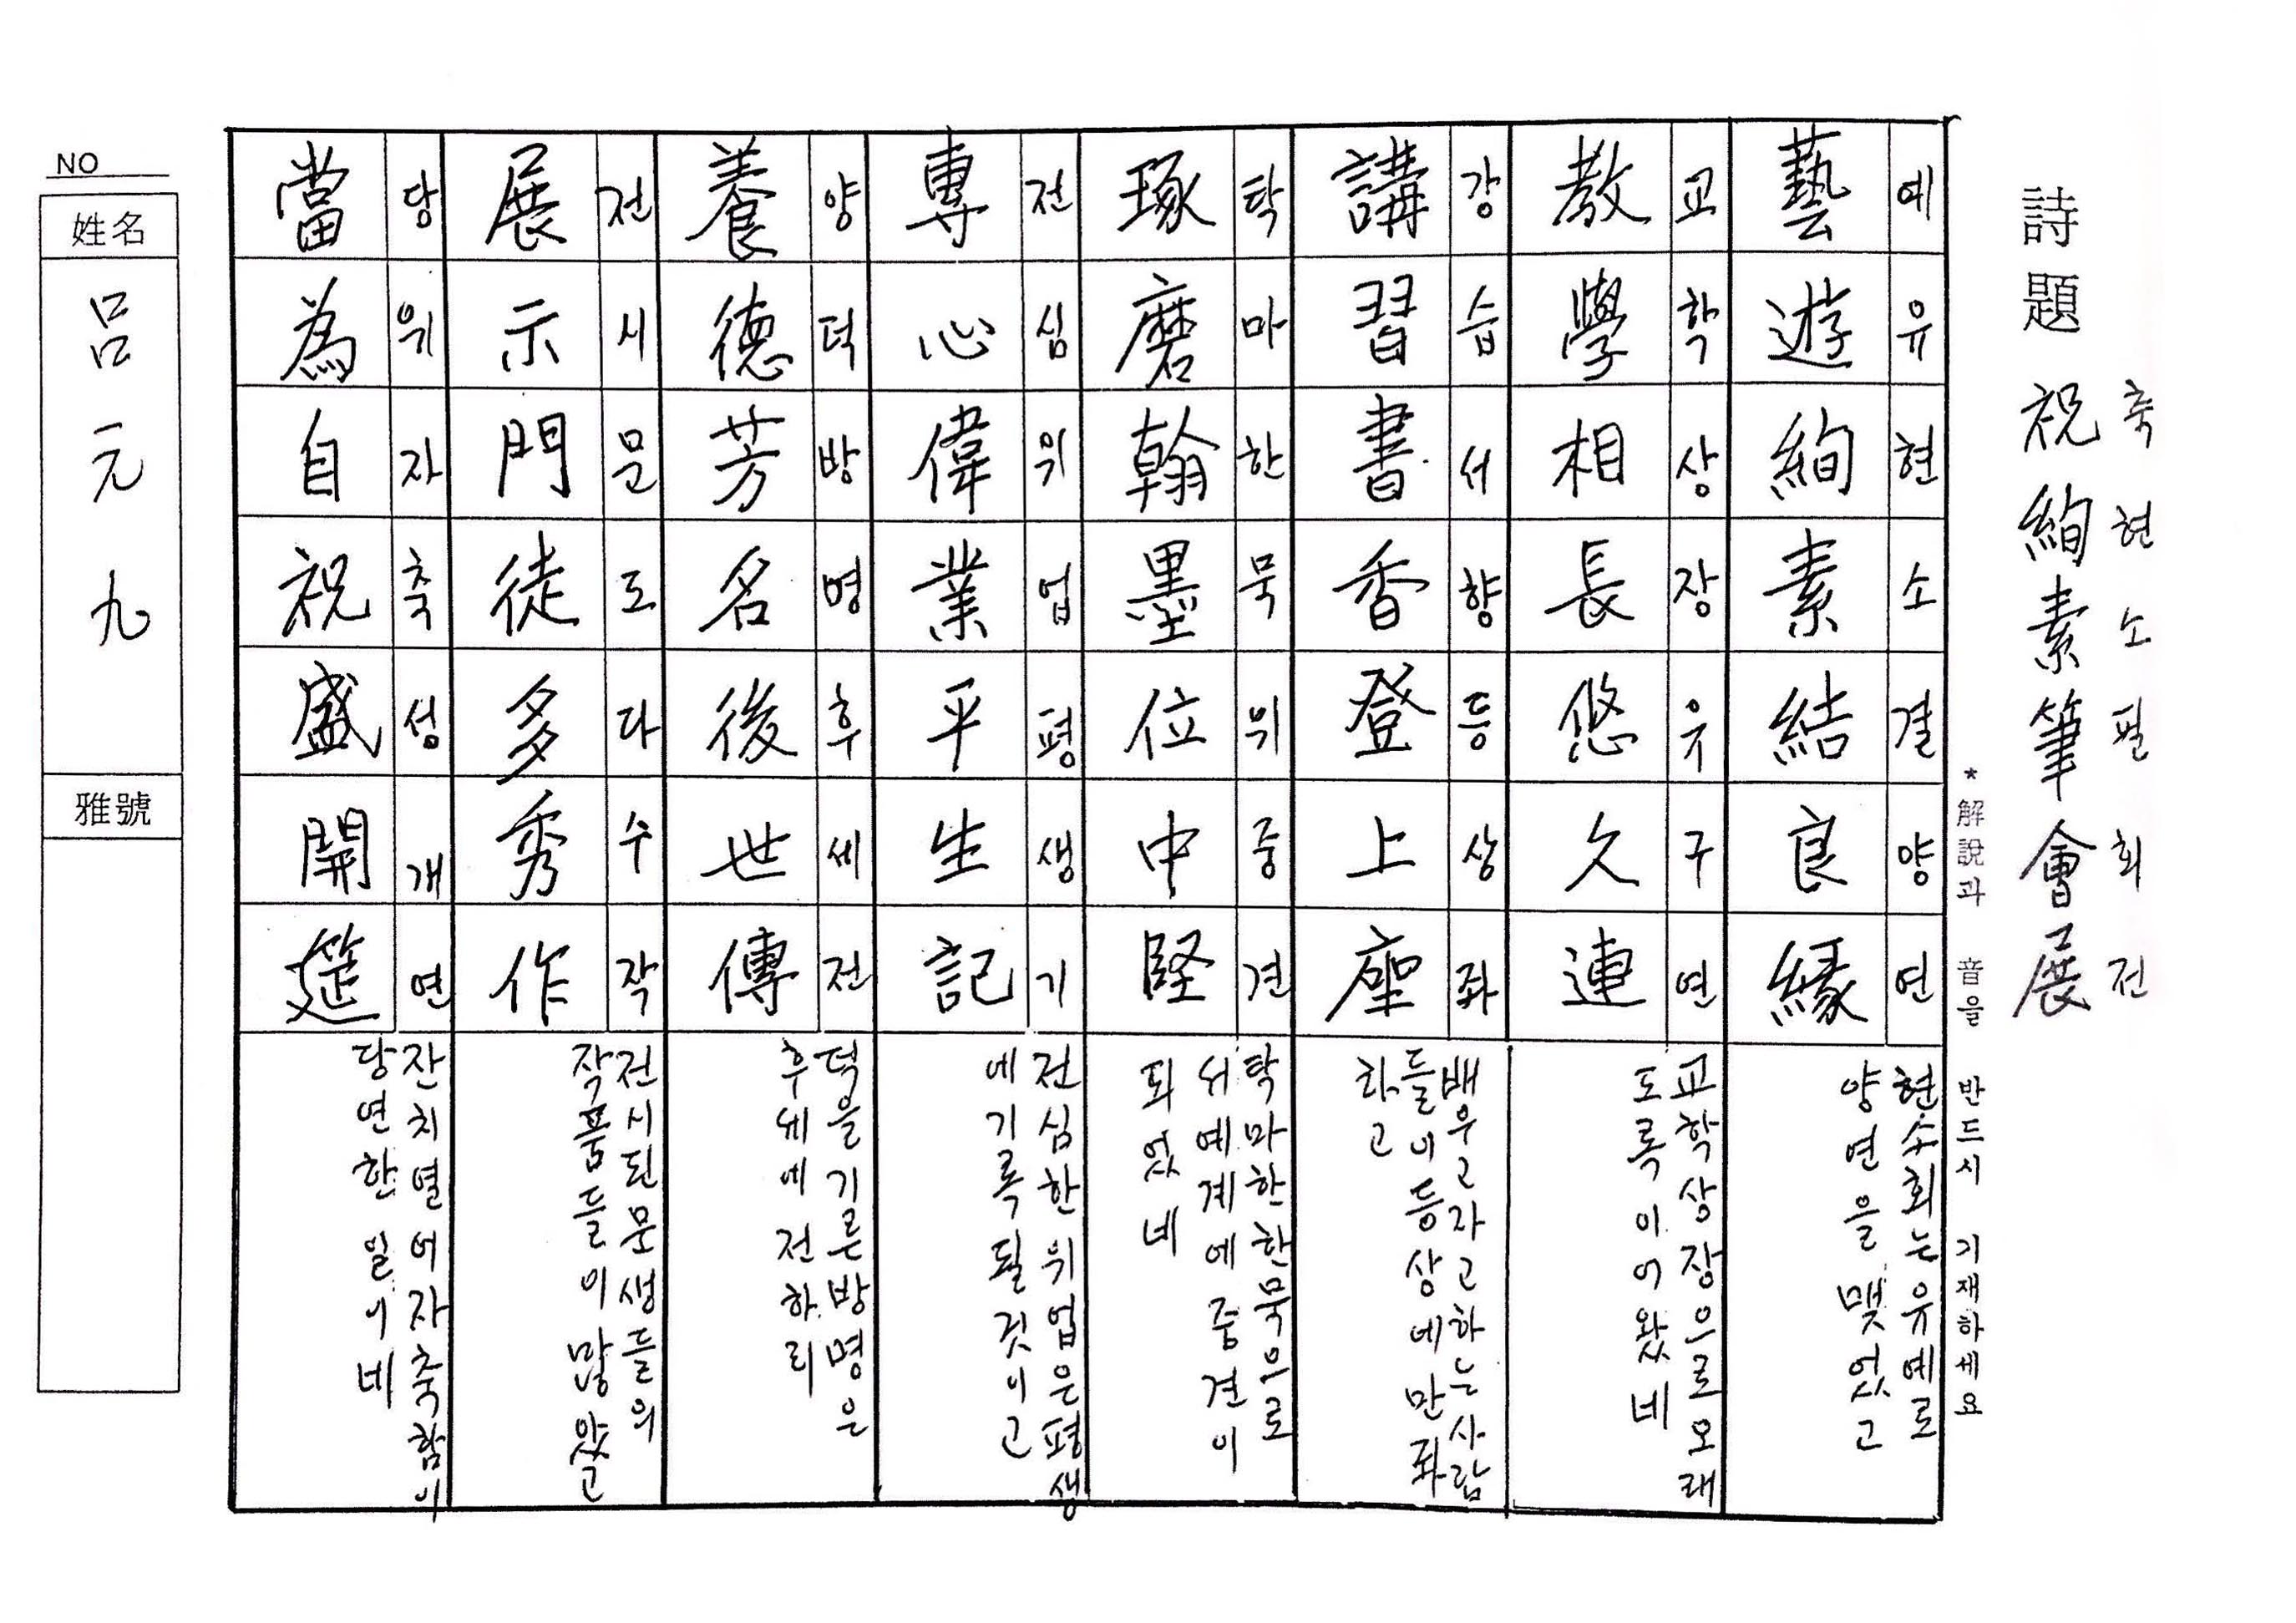 詩題 祝絢素筆會展
축현소필회전
*解說과 音을 반드시 기재하세요
藝遊絢素結良緣
예유현소결양연
현소회는유예로
양연을맺었고
教學相長悠久連
교학상장유구연
교학상장으로오래
도록이어왔네
講習書香登上座
강습서향등상좌
배우고자고하는사람
들이등상에만좌
하고
琢磨翰墨位中堅
탁마한묵위중견
탁마한한묵으로
서예계에중견이
되었네
專心偉業平生記
전심위업평생기
전심한위업은평생
에기록될것이고
養德芳名後世傳
양덕방명후세전
덕을기른방명은
후세에전하리
展示門徒多秀作
전시문도다수작
전시된문생들의
작품들이많았고
當為自祝盛開筵
당위자축성개연
잔치열어자축함이
당연한일이네
NO
姓名
呂元九
雅號